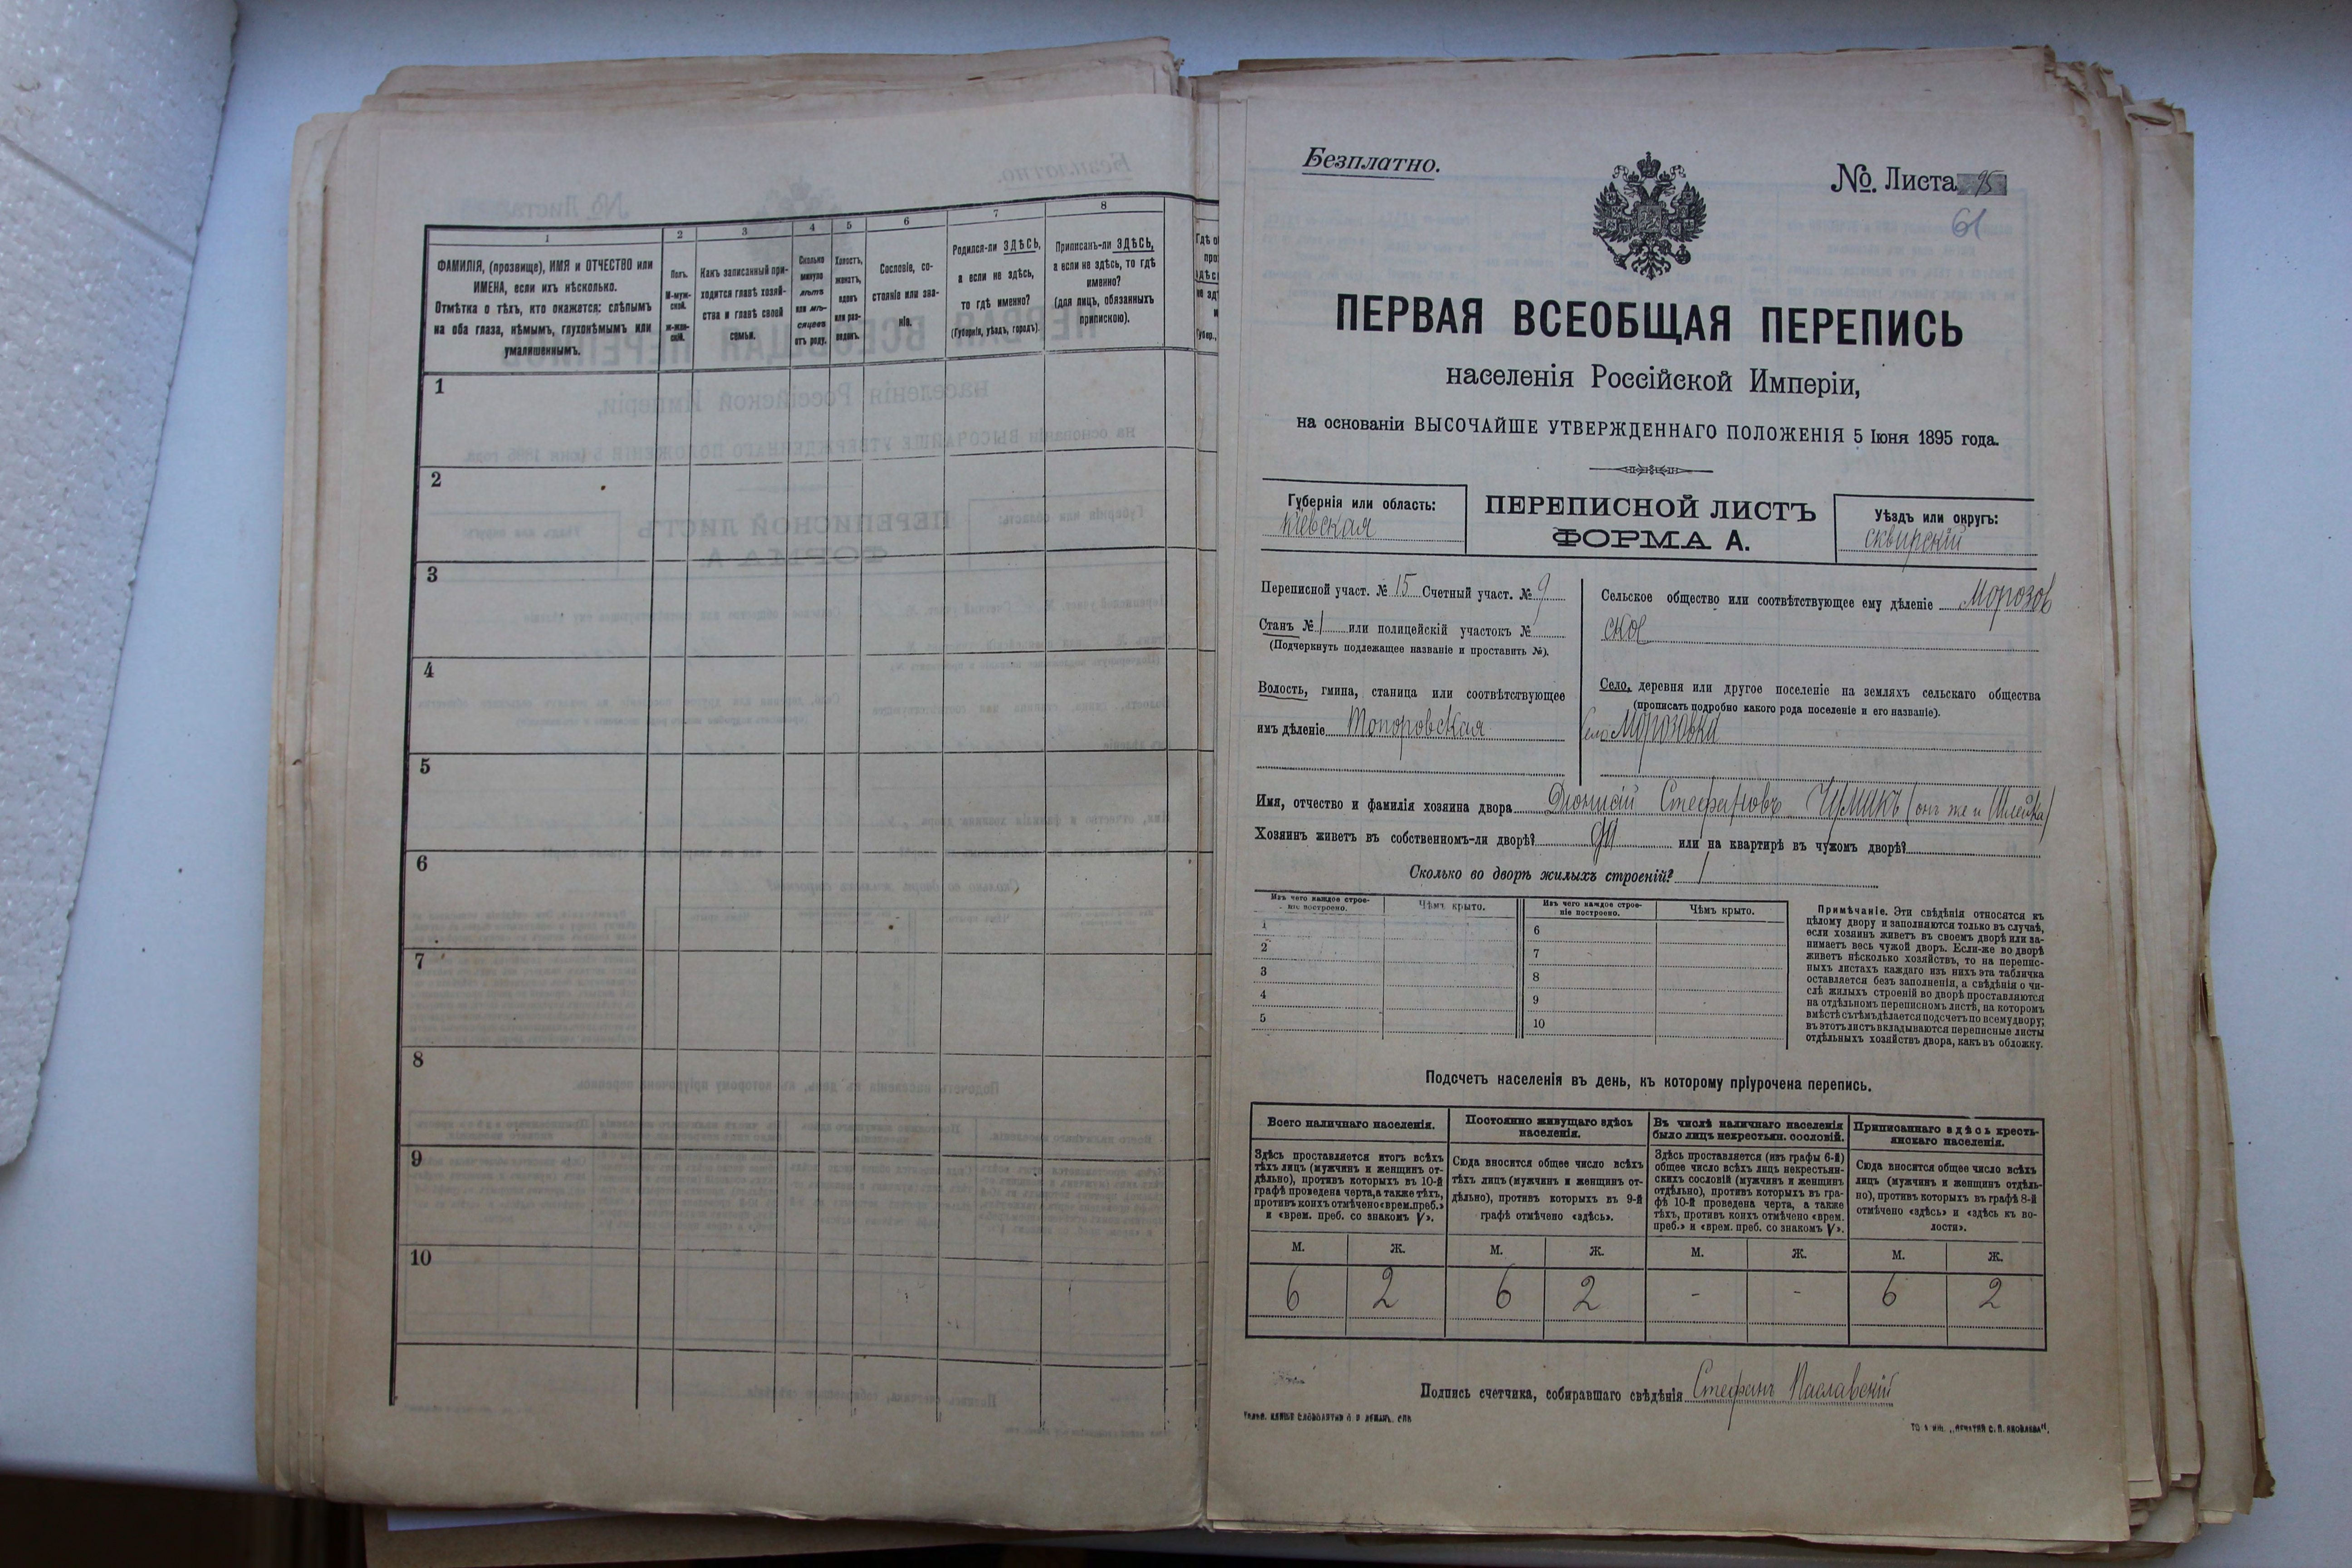 1
2
3
4
5
6
7
8
ФАМИЛІЯ, (прозвище), ИМЯ и ОТЧЕСТВО или
ИМЕНА, если ихъ нѣсколько.
Отмѣтка о тѣхъ, кто окажется: слѣпымъ
на оба глаза, нѣмымъ, глухонѣмымъ или
умалишеннымъ.
Полъ.
М-муж-
ской.
Ж-жен-
скій.
Какъ записанный при-
ходится главѣ хозяй-
ства и главѣ своей
семьи.
Сколько
минуло
лѣтъ
или мѣ-
сяцевъ
отъ роду.
Холостъ,
женатъ,
вдовъ
или раз-
веденъ.
Сословіе, со-
стояніе или зва-
ніе.
Родился-ли ЗДѢСЬ,
а если не здѣсь,
то гдѣ именно?
(Губернія, уѣздъ, городъ).
Приписанъ-ли ЗДѢСЬ,
а если не здѣсь, то гдѣ
именно?
(для лицъ, обязанныхъ
припискою).
1
2
3
4
5
6
7
8
9
10
Безплатно.
№. Листа 95
61
ПЕРВАЯ ВСЕОБЩАЯ ПЕРЕПИСЬ
населенія Россійской Имперіи,
на основаніи ВЫСОЧАЙШЕ УТВЕРЖДЕННАГО ПОЛОЖЕНІЯ 5 Іюня 1895 года.
Губернія или область:
Кіевская
ПЕРЕПИСНОЙ ЛИСТЪ
ФОРМА А.
Уѣздъ или округъ:
сквирскій
Переписной участ. № 15 Счетный участ. № 9
Станъ № 1 или полицейскій участокъ №
(Подчеркнуть подлежащее названіе и проставить №).
Волость, гмина, станица или соотвѣтствующее
имъ дѣленіе Топоровская
Сельское общество или соотвѣтствующее ему дѣленіе Морозов
ское
Село, деревня или другое поселеніе на земляхъ сельскаго общества
(прописать подробно какого рода поселеніе и его названіе).
Село Морозовка
Имя, отчество и фамилія хозяина двора Діонисій Стефановъ Чумакъ (онъ же и Шлейка)
Хозяинъ живетъ въ собственномъ-ли дворѣ? да или на квартирѣ въ чужомъ дворѣ?
Сколько во дворѣ жилыхъ строеній? 1
Изъ чего каждое строе-
ніе построено.
Чѣмъ крыто.
Изъ чего каждое строе-
ніе построено.
Чѣмъ крыто.
1
2
3
4
5
6
7
8
9
10
Примѣчаніе. Эти свѣдѣнія относятся къ
цѣлому двору и заполняются только въ случаѣ,
если хозяинъ живетъ въ своемъ дворѣ или за-
нимаетъ весь чужой дворъ. Если-же во дворѣ
живетъ нѣсколько хозяйствъ, то на перепис-
ныхъ листахъ каждаго изъ нихъ эта табличка
оставляется безъ заполненія, а свѣдѣнія о чи-
слѣ жилыхъ строеній во дворѣ проставляются
на отдѣльномъ переписномъ листѣ, на которомъ
вмѣстѣ съ тѣмъ дѣлается подсчетъ по всему двору;
въ этотъ листъ вкладываются переписные листы
отдѣльныхъ хозяйствъ двора, какъ въ обложку.
Подсчетъ населенія въ день, къ которому пріурочена перепись.
Всего наличнаго населенія.
Постоянно живущаго здѣсь
населенія.
Въ числѣ наличнаго населенія
было лицъ некрестьян. сословій.
Приписаннаго здѣсь кресть-
янскаго населенія.
Здѣсь проставляется итогъ всѣхъ
тѣхъ лицъ (мужчинъ и женщинъ от-
дѣльно), противъ которыхъ въ 10-й
графѣ проведена черта, а также тѣхъ,
противъ коихъ отмѣчено «врем. преб.»
и «врем. преб. со знакомъ V».
Сюда вносится общее число всѣхъ
тѣхъ лицъ (мужчинъ и женщинъ от-
дѣльно), противъ которыхъ въ 9-й
графѣ отмѣчено «здѣсь».
Здѣсь проставляется (изъ графы 6-й)
общее число всѣхъ лицъ некрестьян-
скихъ сословій (мужчинъ и женщинъ
отдѣльно), противъ которыхъ въ гра-
фѣ 10-й проведена черта, а также
тѣхъ, противъ коихъ отмѣчено «врем.
преб.» и «врем. преб. со знакомъ V».
Сюда вносится общее число всѣхъ
лицъ (мужчинъ и женщинъ отдѣль-
но), противъ которыхъ въ графѣ 8-й
отмѣчено «здѣсь» и «здѣсь къ во-
лости».
М. Ж. М. Ж. М. Ж. М. Ж.
6 2 6 2 - - 6 2
Подпись счетчика, собиравшаго свѣдѣнія Стефанъ Паславскій